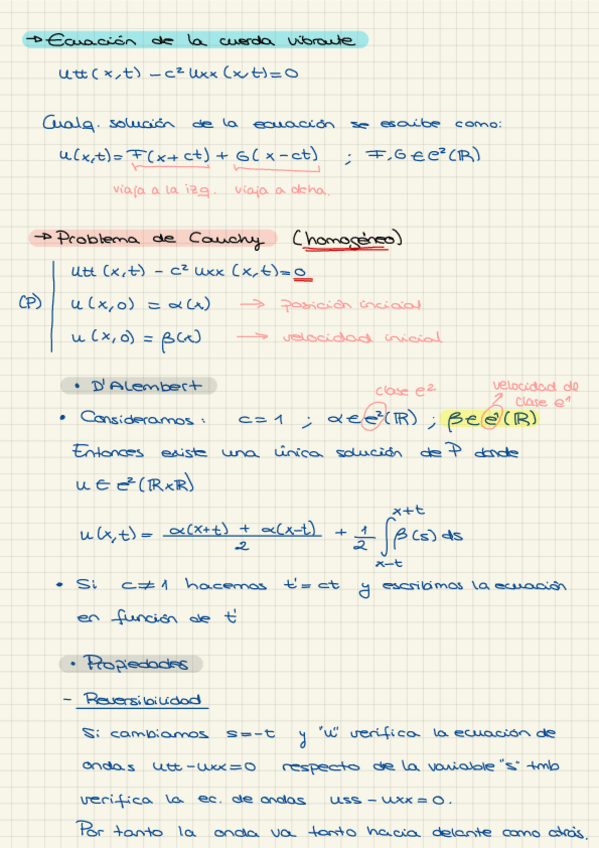 → Ecuación de la cuerda vibrante
utt(x,t) - c² uxx(x,t) = 0
Cualq. solución de la ecuación se escribe como:
u(x,t) = F(x+ct) + G(x-ct) ; F, G ∈ C²(ℝ)
viaja a la izq. viaja a dcha.
→ Problema de Cauchy (homogéneo)
utt(x,t) - c² uxx(x,t) = 0
(P) u(x,0) = α(x) → posición inicial
u(x,0) = β(x) → velocidad inicial
• D'Alembert
clase C² velocidad de clase C¹
• Consideramos: c=1 ; α ∈ C²(ℝ) ; β ∈ C¹(ℝ)
Entonces existe una única solución de P donde
u ∈ C²(ℝxℝ)
u(x,t) = (α(x+t) + α(x-t))/2 + 1/2 ∫_{x-t}^{x+t} β(s) ds
• Si c≠1 hacemos t'=ct y escribimos la ecuación
en función de t'
• Propiedades
- Reversibilidad
Si cambiamos s=-t y "u" verifica la ecuación de
ondas utt-uxx=0 respecto de la variable "s" tmb
verifica la ec. de ondas uss-uxx=0.
Por tanto la onda va tanto hacia delante como atrás.